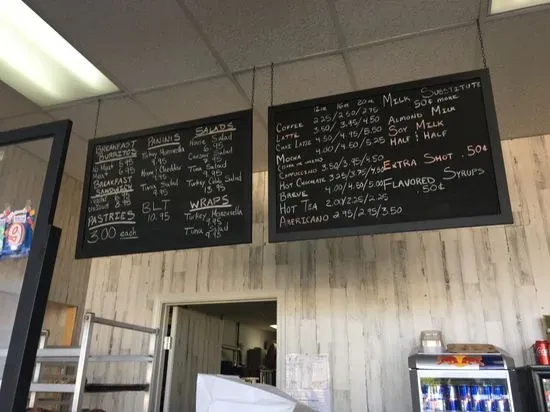 BREAKFAST
BURRITOS
No Meat 6.95
Meat 8.95
BREAKFAST
SANDWICH
PASTRIES
3.00 each
PANINIS
Turkey Mozzarella
9.95
Ham & Cheddar
9.95
Tuna Salad
BLT
10.95
SALADS
House Salad
Caesar Salad
Tuna Salad
Turkey Cobb Salad
13.95
WRAPS
Turkey Mozzarella
9.95
Tuna Salad
9.95
12oz 16oz 20oz
COFFEE 2.25/2.50/2.75
LATTE 3.50/3.95/4.50
CHAI LATTE 3.50/3.95/4.50
MOCHA 4.50/4.95/5.50
4.00/4.50/5.25
CAPPUCCINO 3.50/3.95/4.50
HOT CHOCOLATE 3.25/3.75/4.50
BREVE 4.00/4.50/5.00
HOT TEA 2.00/2.25/2.25
AMERICANO 2.95/2.95/3.50
MILK SUBSTITUTE
50¢ MORE
ALMOND MILK
SOY MILK
HALF & HALF
EXTRA SHOT .50¢
FLAVORED SYRUPS
.50¢
Red Bull